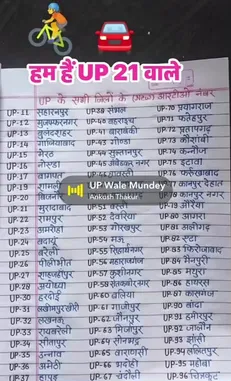 हम हैं UP 21 वाले
UP के सभी जिलों के आरटीओ नंबर
UP-11 सहारनपुर UP-38 संभल UP-70 प्रयागराज
UP-12 मुजफ्फरनगर UP-40 बहराइच UP-71 फतेहपुर
UP-13 बुलंदशहर UP-41 बाराबंकी UP-72 प्रतापगढ़
UP-14 गाजियाबाद UP-43 गोण्डा UP-73 कौशांबी
UP-15 मेरठ UP-44 सुल्तानपुर UP-74 कन्नौज
UP-16 नोएडा UP-45 अंबेडकर नगर UP-75 इटावा
UP-17 बागपत UP-76 फर्रुखाबाद
UP-19 शामली UP-77 कानपुर देहात
UP-20 बिजनौर UP-78 कानपुर नगर
UP Wale Mundey
Ankush Thakur
UP-21 मुरादाबाद UP-51 बस्ती UP-79 औरैया
UP-22 रामपुर UP-52 देवरिया UP-80 आगरा
UP-23 अमरोहा UP-53 गोरखपुर UP-81 अलीगढ़
UP-24 बदायूं UP-54 मऊ UP-82 एटा
UP-25 बरेली UP-55 सिद्धार्थनगर UP-83 फिरोजाबाद
UP-26 पीलीभीत UP-56 महाराजगंज UP-84 मैनपुरी
UP-27 शाहजहाँपुर UP-57 कुशीनगर UP-85 मथुरा
UP-28 अयोध्या UP-58 संतकबीरनगर UP-86 हाथरस
UP-30 हरदोई UP-60 बलिया UP-87 कासगंज
UP-31 लखीमपुर खीरी UP-61 गाजीपुर UP-90 बांदा
UP-32 लखनऊ UP-62 जौनपुर UP-91 हमीरपुर
UP-33 रायबरेली UP-63 मिर्जापुर UP-92 जालौन
UP-34 सीतापुर UP-64 सोनभद्र UP-93 झाँसी
UP-35 उन्नाव UP-65 वाराणसी UP-94 ललितपुर
UP-36 अमेठी UP-66 भदोही UP-95 महोबा
UP-37 हापुड़ UP-67 चंदौली UP-96 चित्रकूट